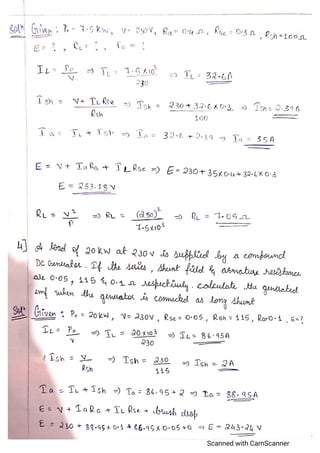 Solⁿ Given : P₀ = 7.5 kw, V = 230V, Ra = 0.4 Ω, Rse = 0.3 Ω, Rsh = 100Ω
E = ?, RL = ?, Io = ?
IL = P₀/V ⇒ IL = 7.5 X10³/230 ⇒ IL = 32.6A
Ish = V + IL Rse/Rsh ⇒ Ish = 230 + 32.6 X 0.3/100 ⇒ Ish = 2.39A
Ia = IL + Ish ⇒ Ia = 32.6 + 2.39 ⇒ Ia = 35A
E = V + IaRa + ILRse ⇒ E = 230 + 35X0.4 + 32.6X0.3
E = 253.78V
RL = V²/P ⇒ RL = (230)²/7.5X10³ ⇒ RL = 7.05Ω
4] A load of 20 KW at 230V is supplied by a compound
DC Generator. If the series, shunt field & armature resistance
are 0.05, 115 & 0.1 Ω respectively. calculate the generated
emf when the generator is connected as long shunt
Solⁿ Given : P₀ = 20KW, V = 230V, Rse = 0.05, Rsh = 115, Ra=0.1, E=?
IL = P₀/V ⇒ IL = 20X10³/230 ⇒ IL = 86.95A
Ish = V/Rsh ⇒ Ish = 230/115 ⇒ Ish = 2A
Ia = IL + Ish ⇒ Ia = 86.95 + 2 ⇒ Ia = 88.95A
E = V + IaRa + ILRse + brush drop
E = 230 + 88.95X0.1 + 86.95X0.05+0 ⇒ E = 243.24 V
Scanned with CamScanner